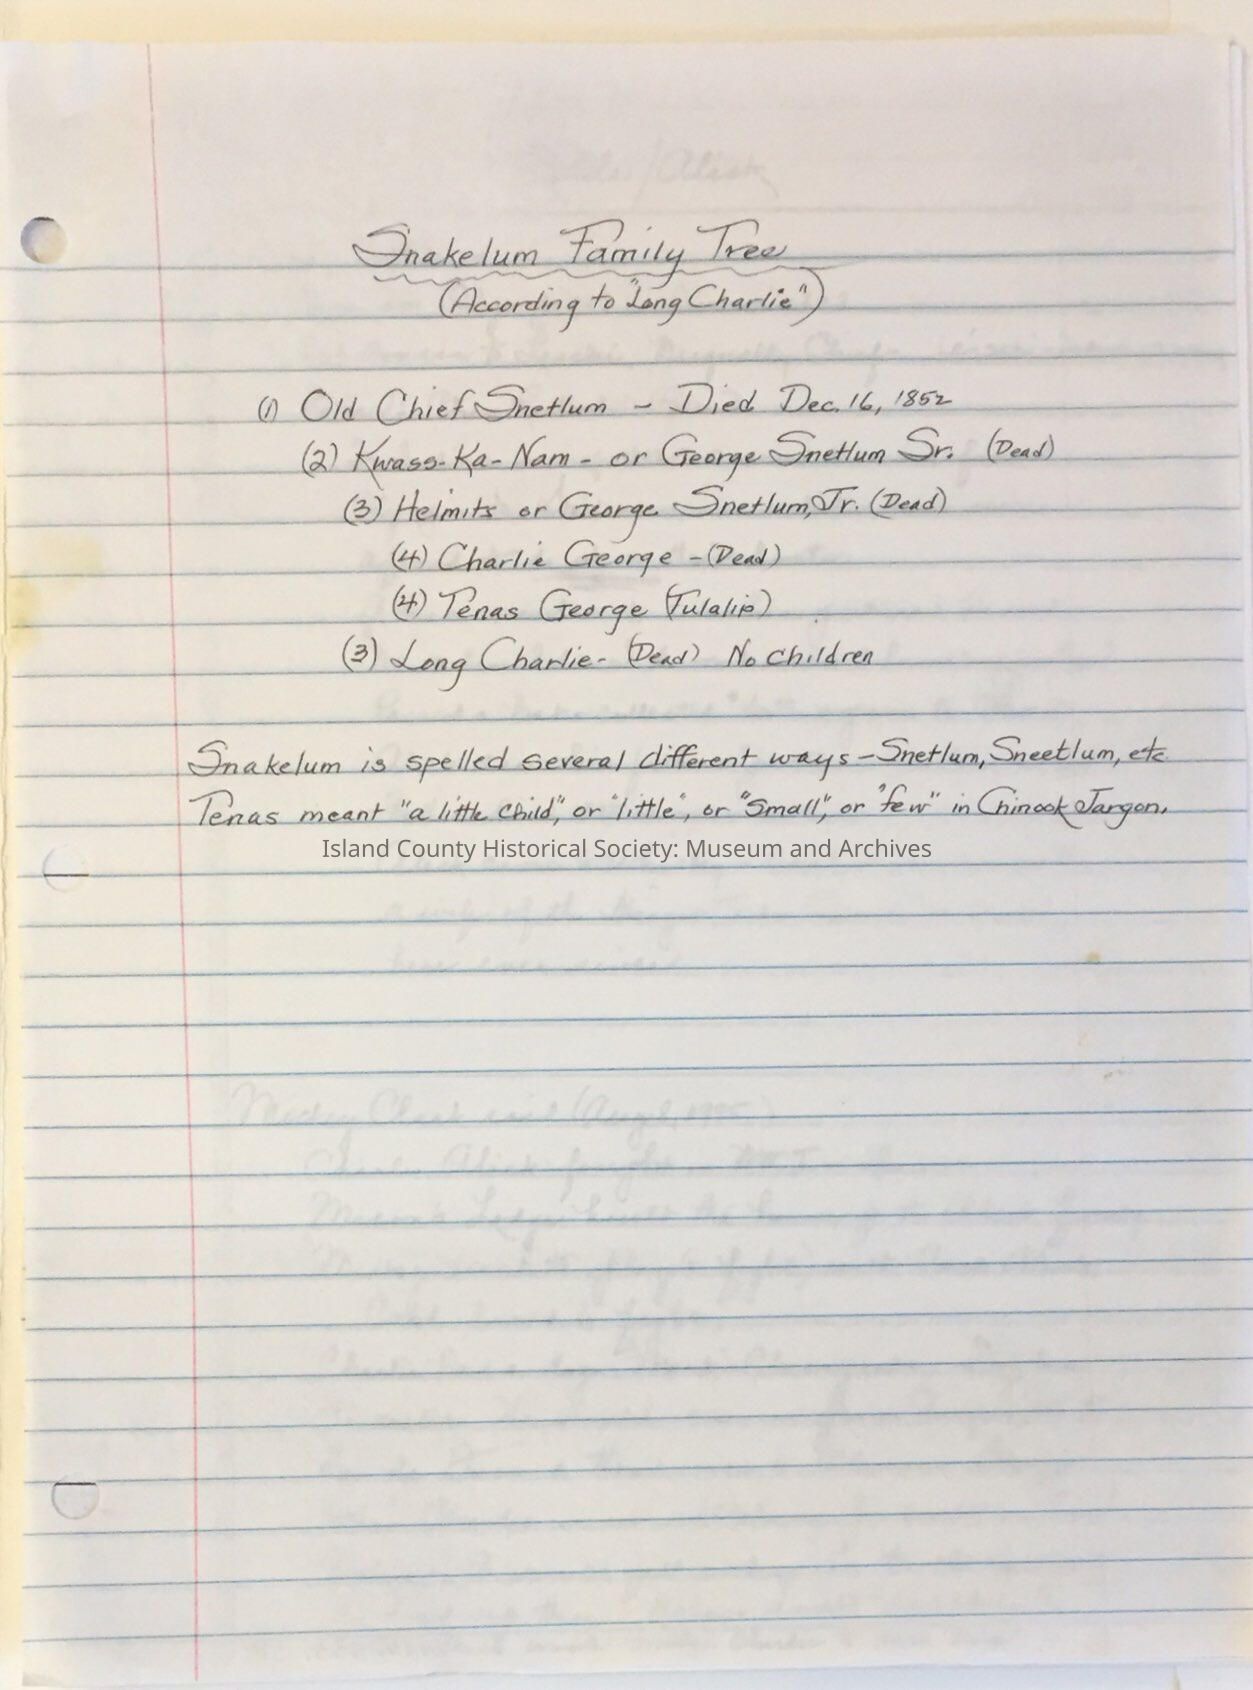 Snakelum Family Tree
(According to "Long Charlie")
(1) Old Chief Snetlum - Died Dec. 16, 1852
(2) Kwass-Ka-Nam - or George Snetlum Sr. (Dead)
(3) Helmits or George Snetlum, Jr. (Dead)
(4) Charlie George - (Dead)
(4) Tenas George (Tulalip)
(3) Long Charlie - (Dead) No children
Snakelum is spelled several different ways - Snetlum, Sneetlum, etc.
Tenas meant "a little child", or "little", or "small", or "few" in Chinook Jargon.
Island County Historical Society: Museum and Archives